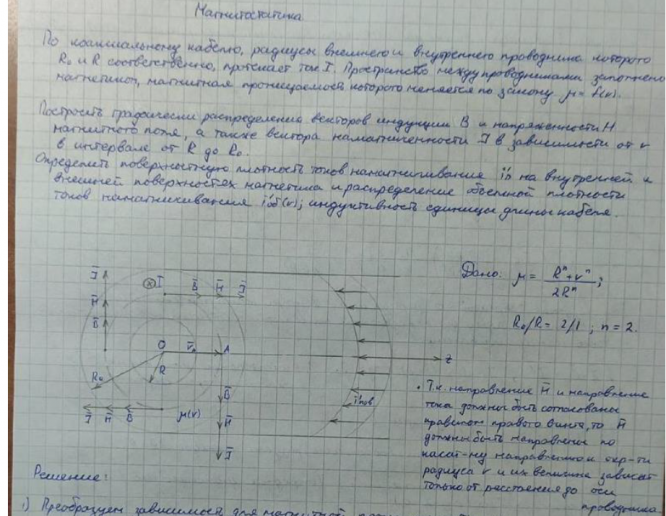 Магнитостатика.
По коаксиальному кабелю, радиусы внешнего и внутреннего проводника которого
R₀ и R соответственно, протекает ток I. Пространство между проводниками заполнено
магнетиком, магнитная проницаемость которого меняется по закону μ = f(r).
Построить графически распределения векторов индукции B и напряженности H
магнитного поля, а также вектора намагниченности J в зависимости от r
в интервале от R до R₀.
Определить поверхностную плотность токов намагничивания i'п на внутренней и
внешней поверхностях магнетика и распределение объемной плотности
токов намагничивания i'об(r); индуктивность единицы длины кабеля.
Дано: μ = (Rⁿ + rⁿ)/2Rⁿ;
R₀/R = 2/1, n = 2.
J̄
H̄
B̄
Ī
B̄ H̄ J̄
O A z
R₀ R
J̄ H̄ B̄ μ(r)
B̄
H̄
J̄
i'пов
• Т.к. направление H̄ и направление
тока должны быть согласованы
правилом правого винта, то H̄
должны быть направлены по
касат-ну направлению к окр-ти
радиуса r и их величина зависят
только от расстояния до оси
проводника
Решение:
1) Преобразуем зависимость для магнитной